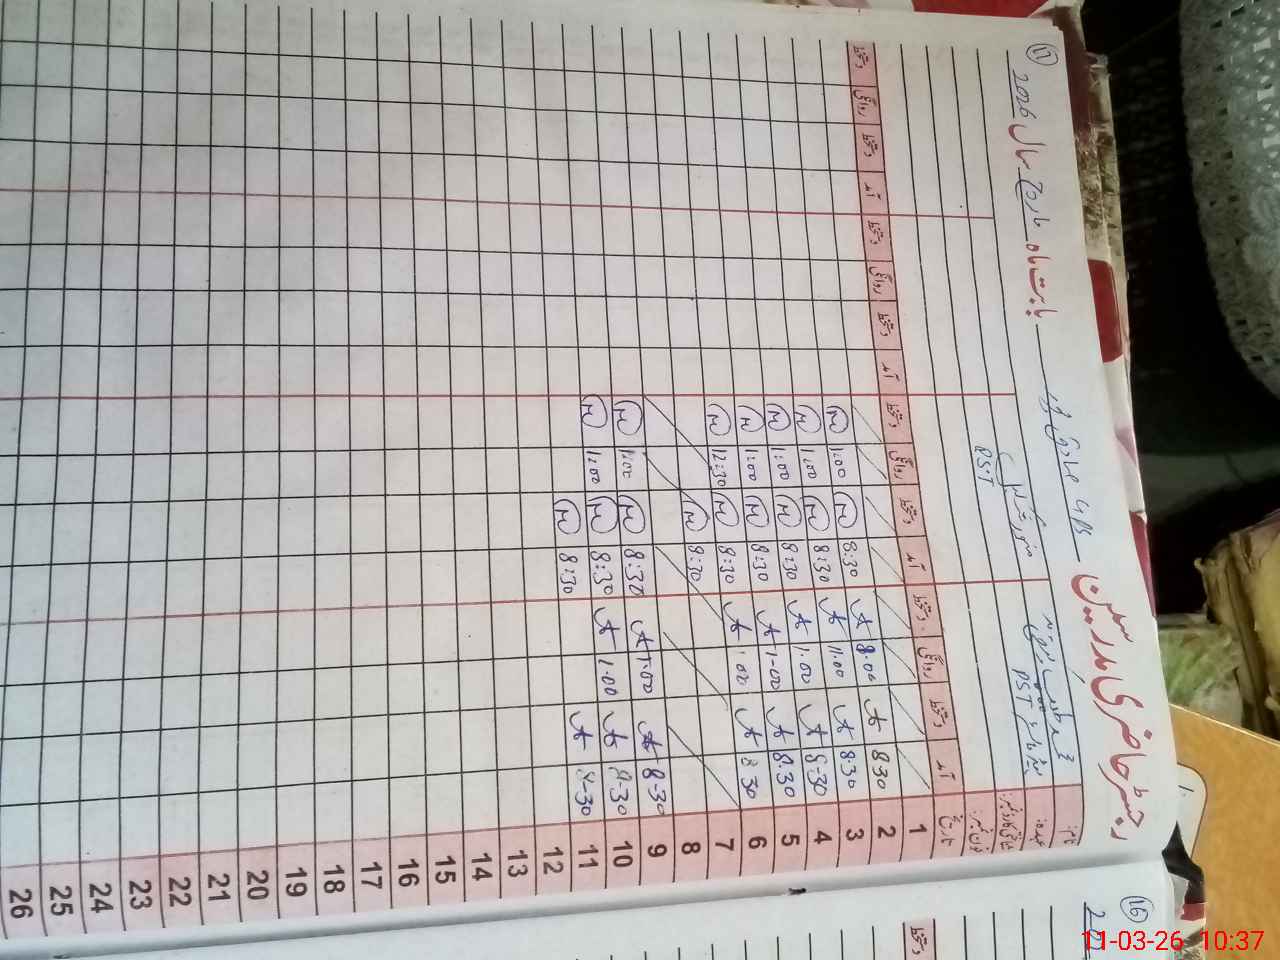 رجسٹر حاضری مدرسین GPS بابت ماہ مارچ سال 2026 (17)
نام:
عہدہ: PST PST
شناختی کارڈ نمبر:
فون نمبر:
تاریخ آمد دستخط روانگی دستخط آمد دستخط روانگی دستخط آمد دستخط روانگی دستخط آمد دستخط روانگی دستخط
1
2 8:30 8:00
3 8:30 11:00 8:30 1:00
4 8-30 1:00 8:30 1:00
5 8:30 1-00 8:30 1:00
6 8 30 1:00 8:30 1:00
7 8:30 12:30
8 8:30
9 8-30 1:00
10 8-30 1:00 8:30 1:00
11 8-30 8:30 1:00
12 8:30
13
14
15
16
17
18
19
20
21
22
23
24
25
26
(16)
دستخط
11-03-26 10:37